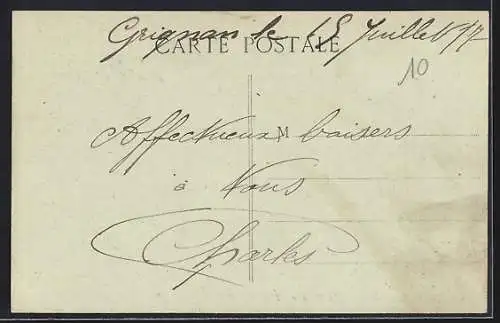 Grignan le 15 Juillet 17
CARTE POSTALE
10
Affectueux baisers
M
à Vous
Charles